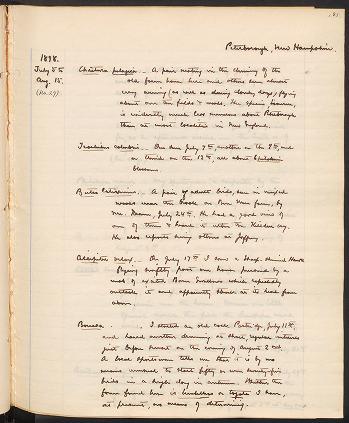 Peterborough, New Hampshire.
1898.
July 5 to
Aug. 15.
(No. 29).
Chaetura pelagica. – A pair nesting in the chimney of the
old farm house here and others seen almost
every evening (as well as during cloudy days) flying
about over the fields & woods. The species, however,
is evidently much less numerous about Peterborough
than in most localities in New England.
Trochilus colubris. – One seen July 7th, another on the 8th, and
a third on the 13th, all about
blossoms.
Buteo latissimus. – A pair of adult birds, seen in mixed
woods near the brook on Bon Mour farm, by
Mr. , July 24th. He had a good view of
one of them & heard it utter the Killdeer cry.
He also reports seeing others in Jaffrey.
Accipiter velox. – On July 17th I saw a Sharp-shinned Hawk
flying swiftly past our house pursued by a
mob of excited Barn Swallows which repeatedly
overtook it and apparently struck at its head from
above.
Bonasa. I started an old cock Partridge, July 11th,
and heard another drumming, at short, regular intervals
just before sunset on the evening of August 2nd.
A local sportsman tells me that it is by no
means unusual to start fifty or even seventy-five
birds in a single day in autumn. Whether the
form found here is umbellus or togata I have,
at present, no means of determining.